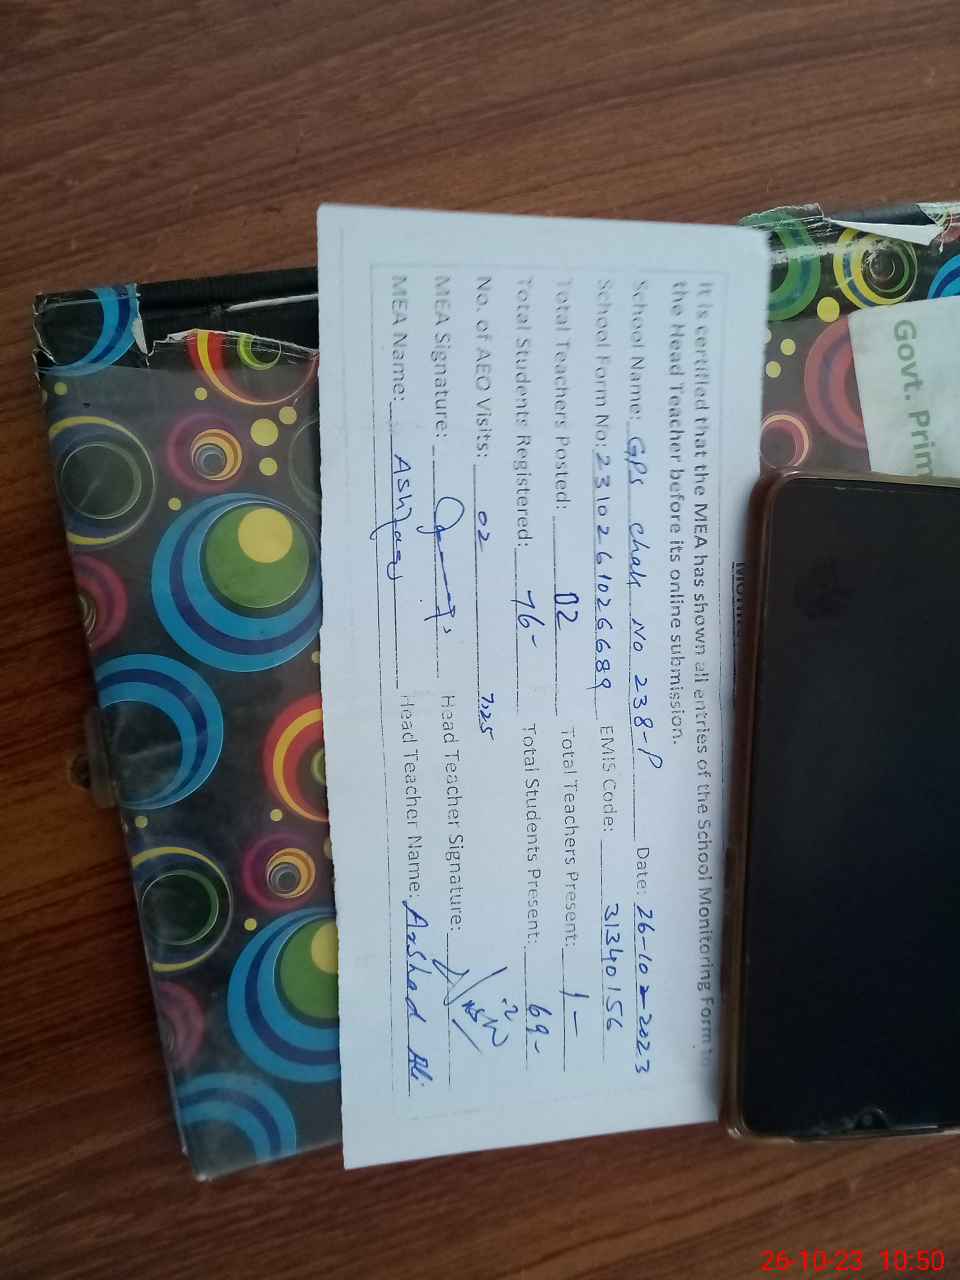 It is certified that the MEA has shown all entries of the School Monitoring Form to
the Head Teacher before its online submission.
School Name: GPS chak No 238-P Date: 26-10-2023
School Form No: 2310261026689 EMIS Code: 31340156
Total Teachers Posted: 02 Total Teachers Present: 1-
Total Students Registered: 76- Total Students Present: 69-
No. of AEO Visits: 02 7.25
MEA Signature: Head Teacher Signature:
MEA Name: Ashfaq Head Teacher Name: Arshad Ali
Govt. Prim
26-10-23 10:50